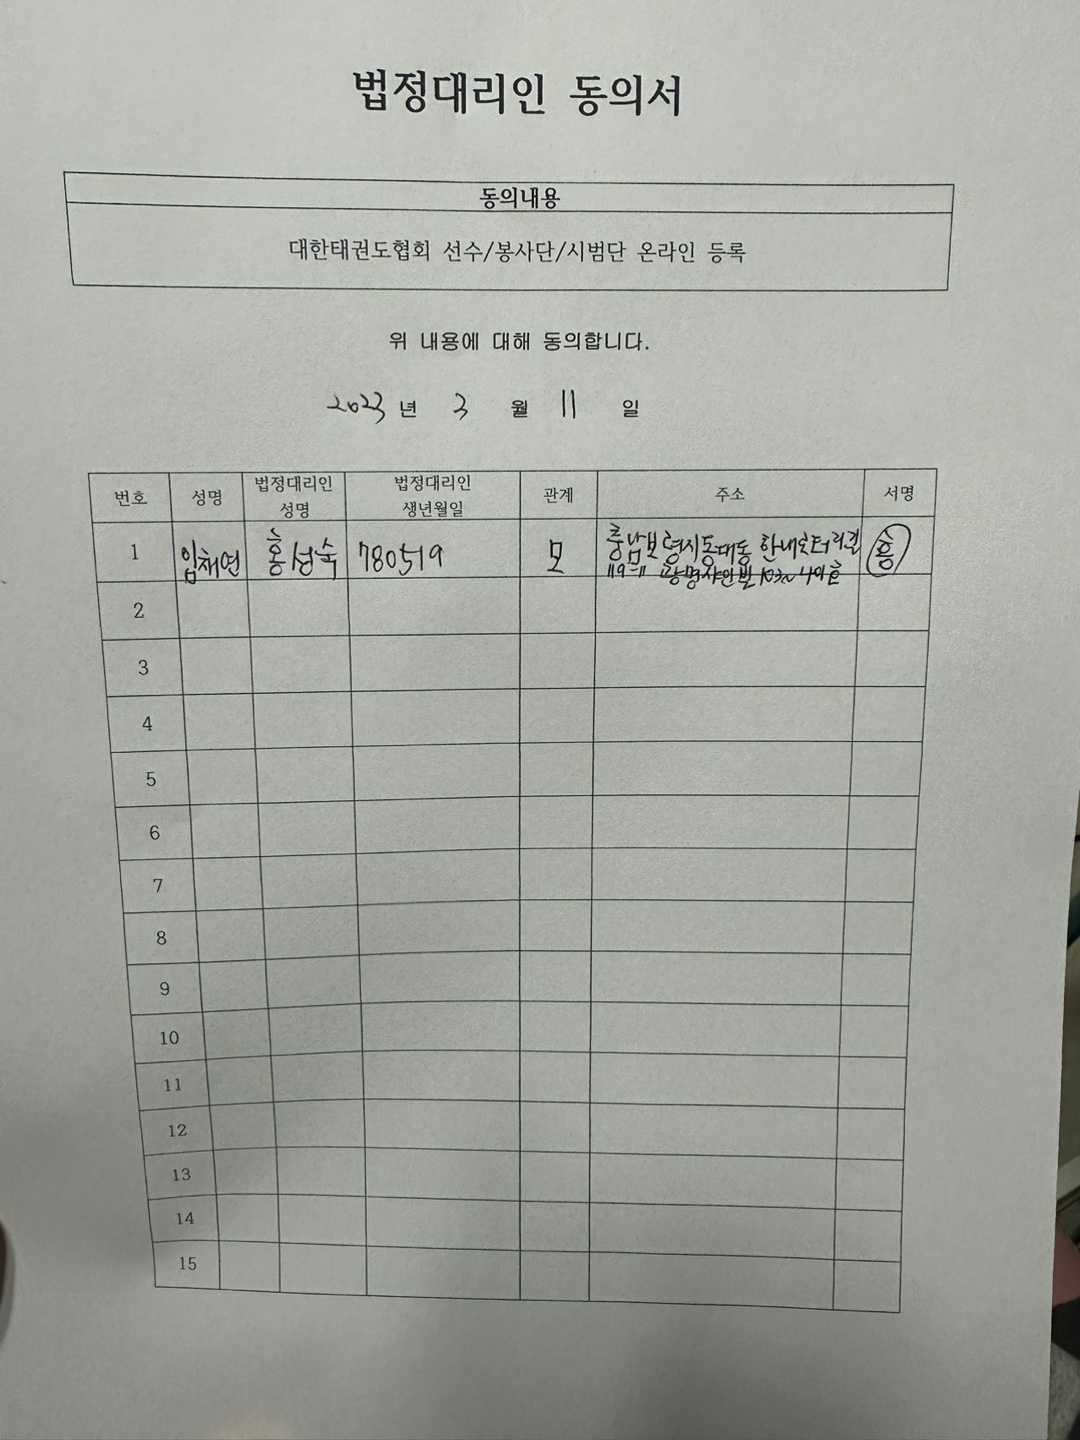 법정대리인 동의서
동의내용
대한태권도협회 선수/봉사단/시범단 온라인 등록
위 내용에 대해 동의합니다.
2023 년 3 월 11 일
번호 성명 법정대리인 성명 법정대리인 생년월일 관계 주소 서명
1 임채연 홍성숙 780519 모 충남보령시동대동 한내로터리길 홍
119-11 광명샤인빌
2
3
4
5
6
7
8
9
10
11
12
13
14
15